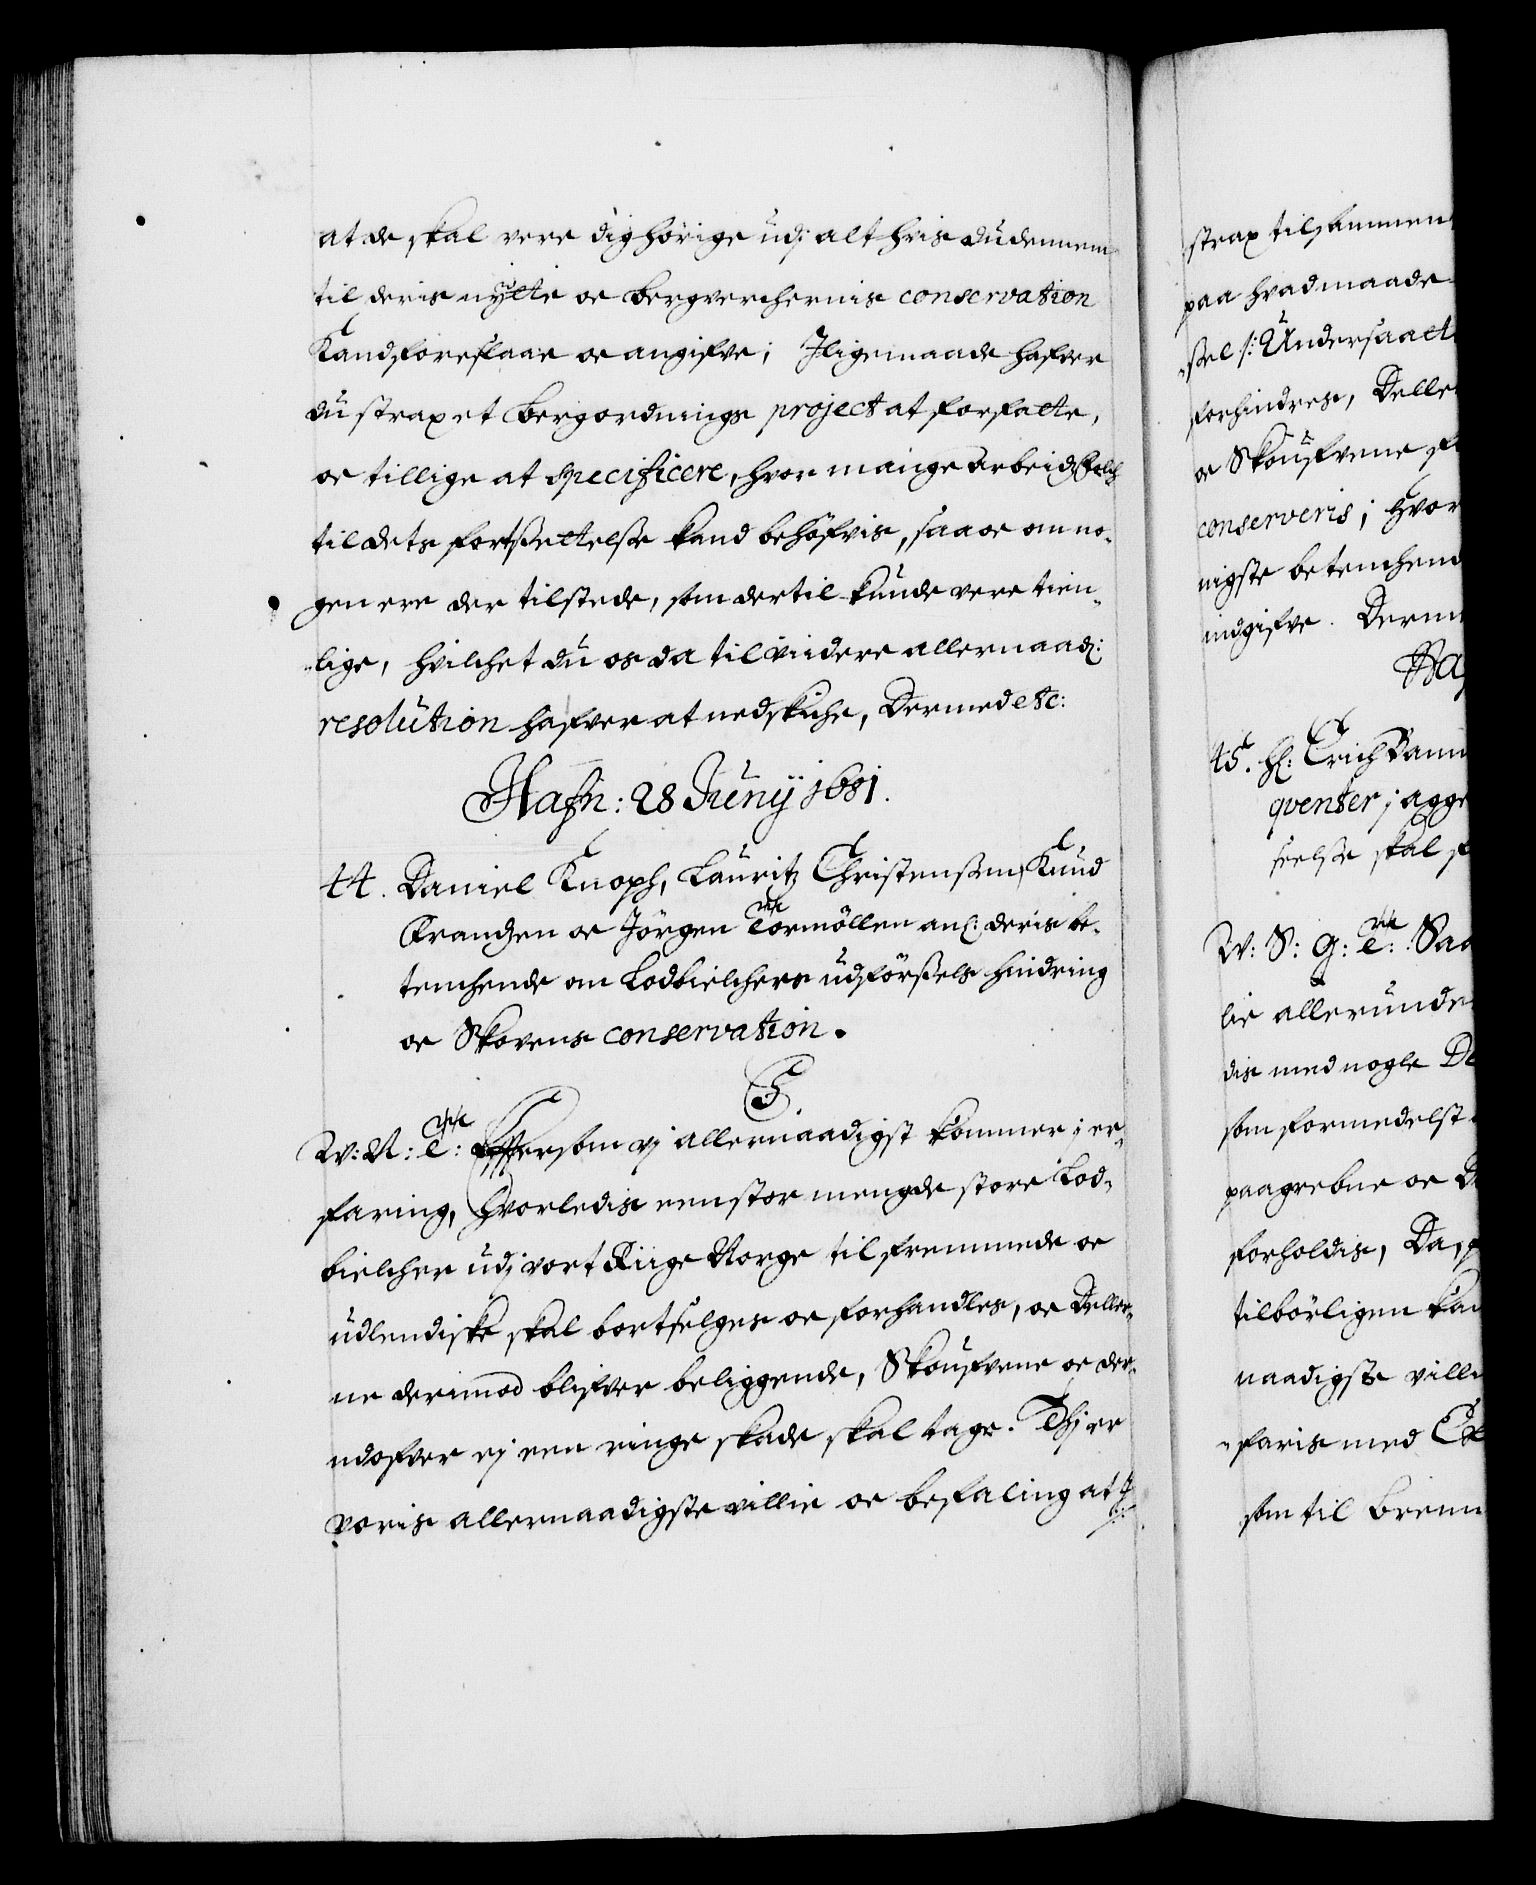 at de skal vere dig hörige udj alt hvis du dennem
til deris nytte oc bergverchernis conservation
Kand foreslaae oc angifve; Jligemaade hafver
du strax et bergordnings project at forfatte,
oc tillige at specificere, hvor mange arbeidsfolch
til dets fortsettelse kand behöfvis, saa oc om no-
gen ere der tilstede, som dertil kunde vere tien-
lige, hvilchet du os da til viidere allernaad:
resolution hafver at nedskiche, Dermed etc:
Hafn: 28 Junÿ 1681.
44. Daniel Knoph, Lauritz Christensen, Knud
Frandzen oc Jörgen Tormöllen anl: deris be-
tenchende om Lodbielchers udförsels hindring
oc Skovens conservation.
C5.
W: N: T: Eftersom vj allernaadigst kommer i er-
faring, hvorledis een stor mengde store Lod-
bielcher udj vort Riige Norge til fremmede oc
udlendiske skal bortselges oc forhandles, oc Deller-
ne derimod blifver beliggende, Skoufvene oc der-
udofver ej een ringe skade skal tage. Thj er
voris allernaadigste villie oc befaling at J
strax tilsammen
paa hvad maade
sel /: Undersaatt
forhindres, Delle
oc Skoufvene
conserveris; hvor
nigste betenchend
indgifve. Derm
45. H: Erich Bann
qventer; agge
seelse skal
W: S: G: T: Saa
lie allerunde
dis med nogle De
som formedelst
paagrebne oc
forholdis, Da,
tilbörligen kan
naadigste villi
faris med
som til brenn